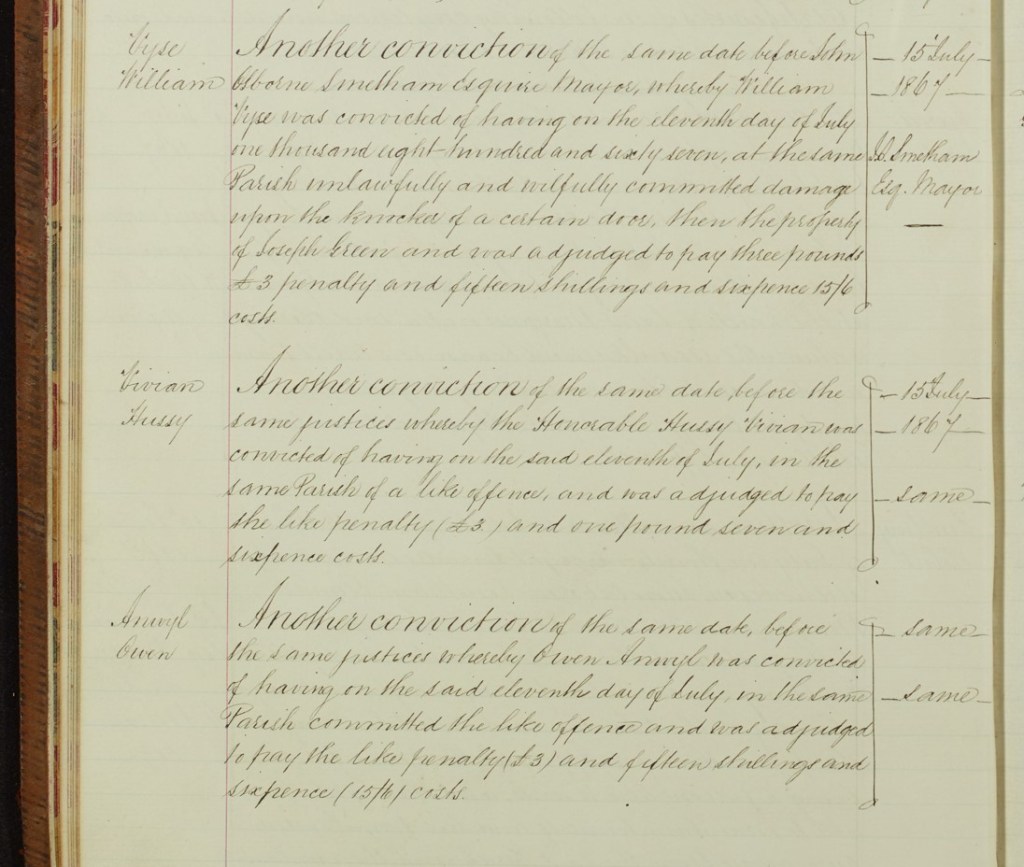 Vyse
William
Another conviction of the same date before John
Osborne Smetham Esquire Mayor, whereby William
Vyse was convicted of having on the eleventh day of July
one thousand eight hundred and sixty seven, at the same
Parish unlawfully and wilfully committed damage
upon the knocker of a certain door, then the property
of Joseph Green and was adjudged to pay three pounds
£3 penalty and fifteen shillings and sixpence 15/6
costs.
15 July
1867
J.O. Smetham
Esq. Mayor
Vivian
Hussy
Another conviction of the same date, before the
same justices whereby the Honorable Hussy Vivian was
convicted of having on the said eleventh of July, in the
same Parish of a like offence, and was adjudged to pay
the like penalty (£3) and one pound seven and
sixpence costs.
15 July
1867
same
Anwyl
Owen
Another conviction of the same date, before
the same justices whereby Owen Anwyl was convicted
of having on the said eleventh day of July, in the same
Parish committed the like offence and was adjudged
to pay the like penalty (£3) and fifteen shillings and
sixpence (15/6) costs.
same
same